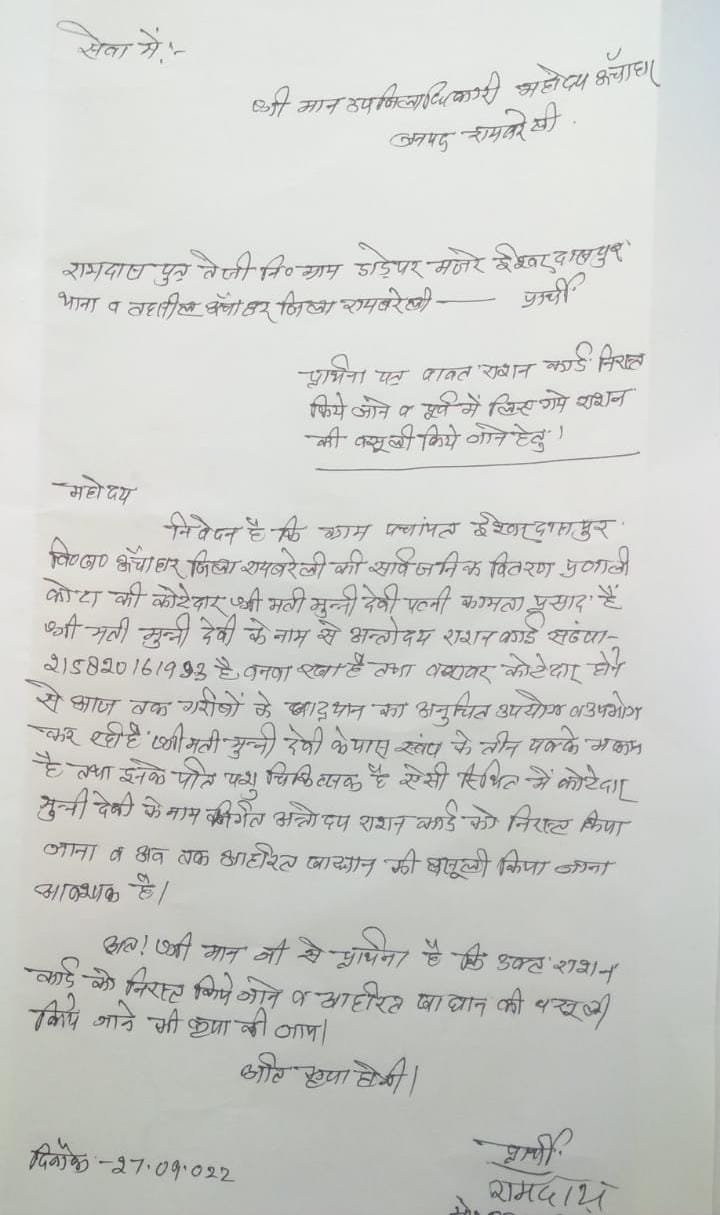 सेवा में,:-
श्री मान उपजिलाधिकारी महोदय ऊँचाहार
जनपद रायबरेली.
रामदास पुत्र तेजी नि० ग्राम डाड़ेपर मजरे ईश्वरदासपुर
थाना व तहसील ऊँचाहर जिला रायबरेली —— प्रार्थी
प्रार्थना पत्र वावत राशन कार्ड निरस्त
किये जाने व पूर्व में लिए गये राशन
की वसूली किये जाने हेतु।
महोदय
निवेदन है कि ग्राम पचांयत ईश्वरदासपुर
वि०ख० ऊँचाहार जिला रायबरेली की सार्वजनिक वितरण प्रणाली
कोटा की कोटेदार श्री मती मुन्नी देवी पत्नी कामता प्रसाद हैं
श्री मती मुन्नी देवी के नाम से अन्तोदय राशन कार्ड संख्या-
है, बनवा रखा है तथा बराबर कोटेदार होने
से आज तक गरीबों के खाद्यान का अनुचित उपयोग व उपभोग
कर रही है श्रीमती मुन्नी देवी के पास स्वंय के तीन पक्के मकान
है तथा इनके पति पशु चिकित्सक है ऐसी स्थित में कोटेदार
मुन्नी देवी के नाम निर्गत अन्तोदय राशन कार्ड को निरस्त किया
जाना व अब तक आहरित खाद्यान की वसूली किया जाना
आवश्यक है।
अतः श्री मान जी से प्रार्थना है कि उक्त राशन
कार्ड को निरस्त किये जाने व आहरित खाद्यान की वसूली
किये जाने की कृपा की जाय।
अति कृपा होगी।
दिनाँक:-27.09.022
प्रार्थी
रामदास